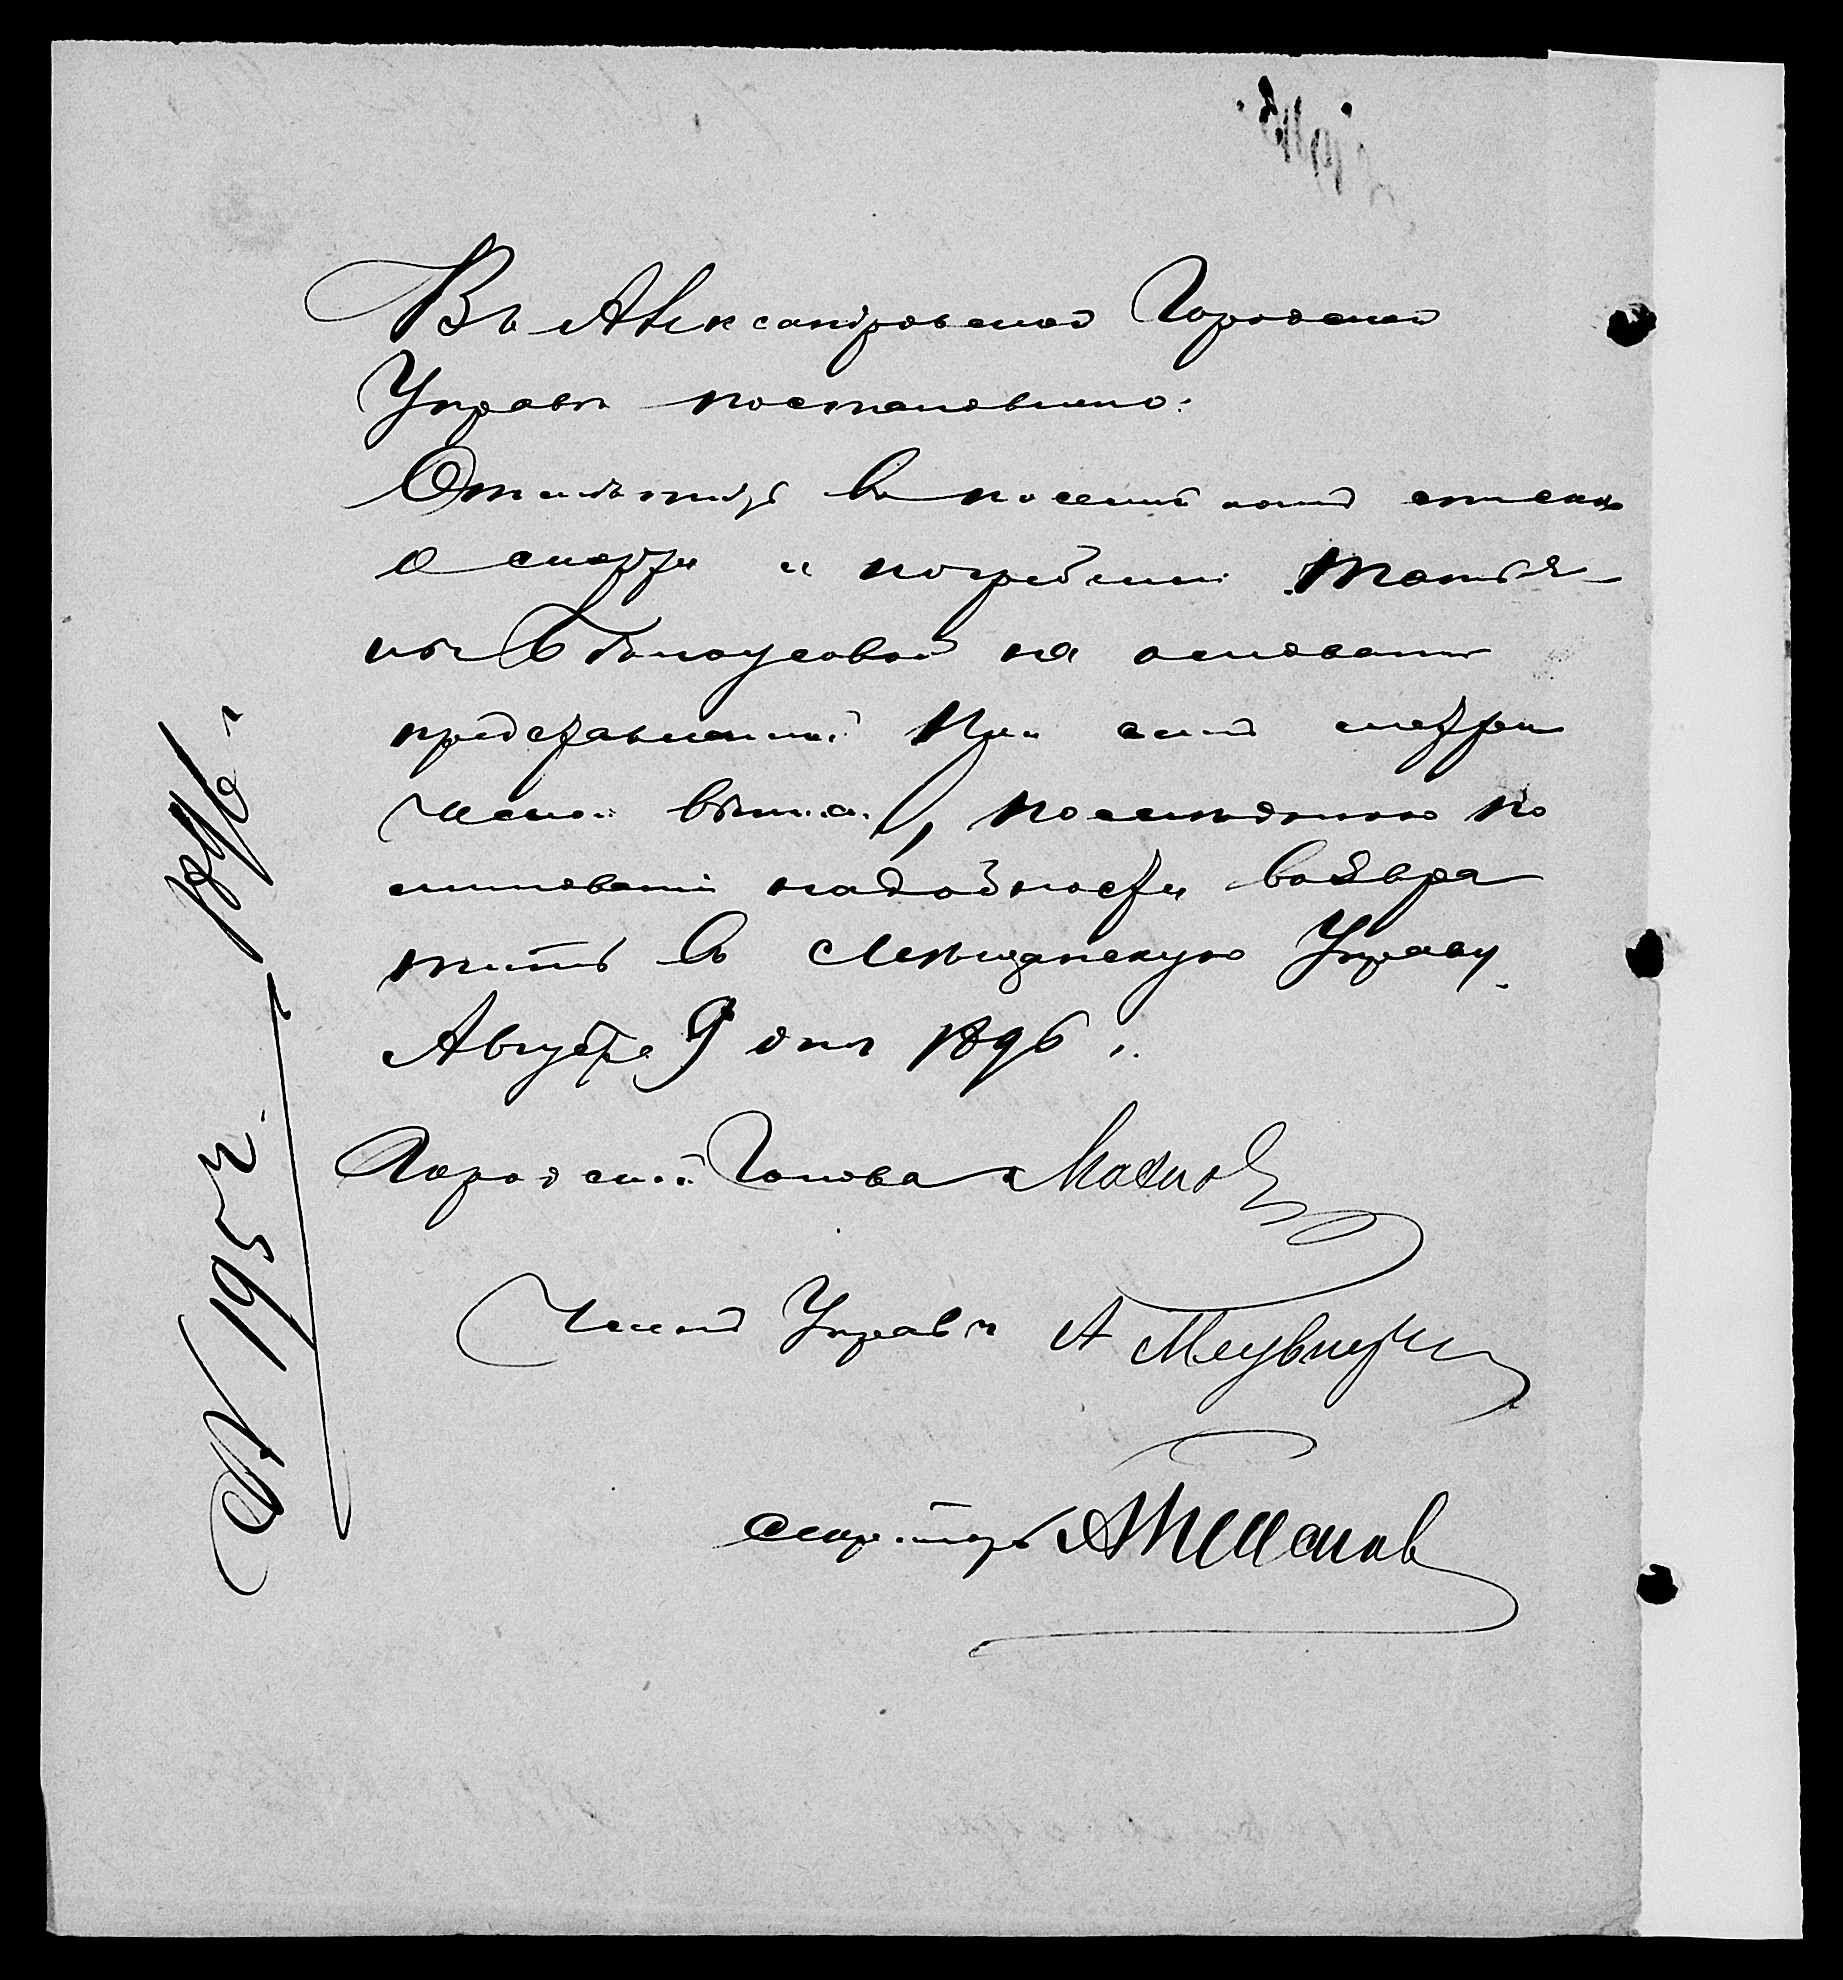 Въ Александровской Городской
Управѣ постановлено:
Отмѣтить въ посемейномъ спискѣ
о смерти и погребеніи Татья-
ны Бѣлоусовой на основаніи
представленной при семъ метри
ческой выписи, последнюю по
минованіи надобности возвра
тить въ Мѣщанскую Управу.
Августа 9 дня 1896 г.
Городской Голова
Членъ Управы А
Секретарь
N 195 1896 г.